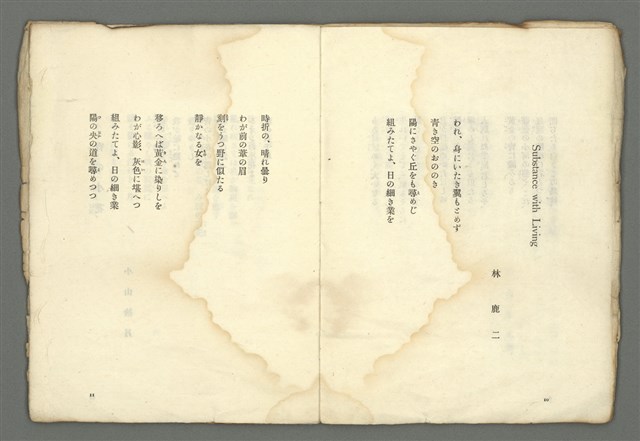 Substance with Living
林鹿二
われ、身にいたき翼もとめず
青き空のおののき
陽にさやぐ丘をも尋めじ
組みたてよ、日の細き業を
10
時折の、晴れ曇り
わが前の葦の眉
刻をうつ野に似たる
靜かなる女を
移ろへば黃金に染りしを
わが心影、灰色に堪へつ
組みたてよ、日の細き業
陽の央の道を尋めつつ
11